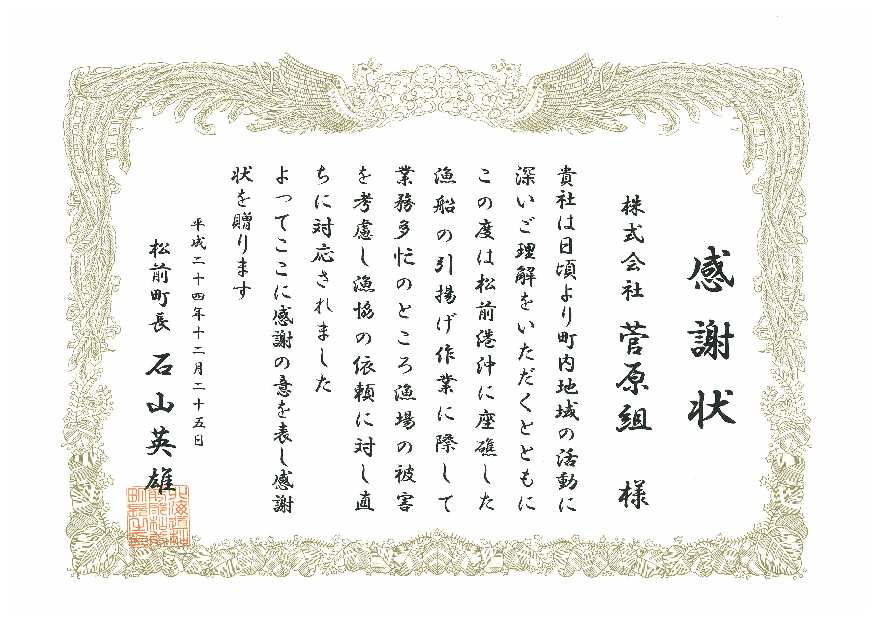 感謝状
株式会社 菅原組 様
貴社は日頃より町内地域の活動に
深いご理解をいただくとともに
この度は松前港沖に座礁した
漁船の引揚げ作業に際して
業務多忙のところ漁場の被害
を考慮し漁協の依頼に対し直
ちに対応されました
よってここに感謝の意を表し感謝
状を贈ります
平成二十四年十二月二十五日
松前町長 石山英雄